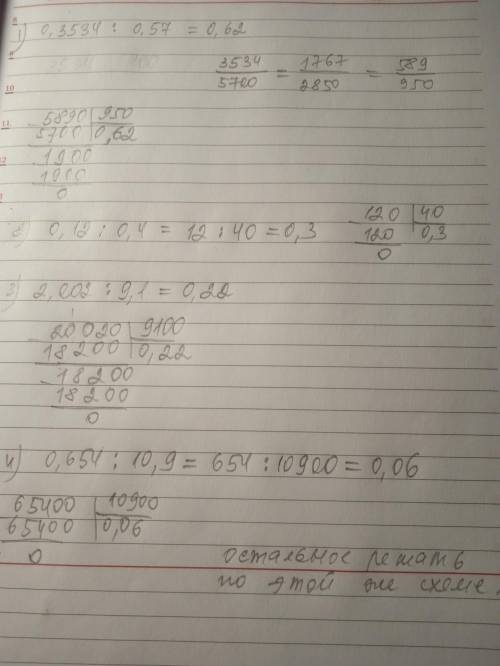 1) 0,3534 : 0,57 = 0,62
3534/5700 = 1767/2850 = 589/950
5890 | 950
5700 | 0,62
1900
1900
0
2) 0,12 : 0,4 = 12 : 40 = 0,3
120 | 40
120 | 0,3
0
3) 2,002 : 9,1 = 0,22
20020 | 9100
18200 | 0,22
18200
18200
0
4) 0,654 : 10,9 = 654 : 10900 = 0,06
65400 | 10900
65400 | 0,06
0
остальное решать
по этой же схеме.